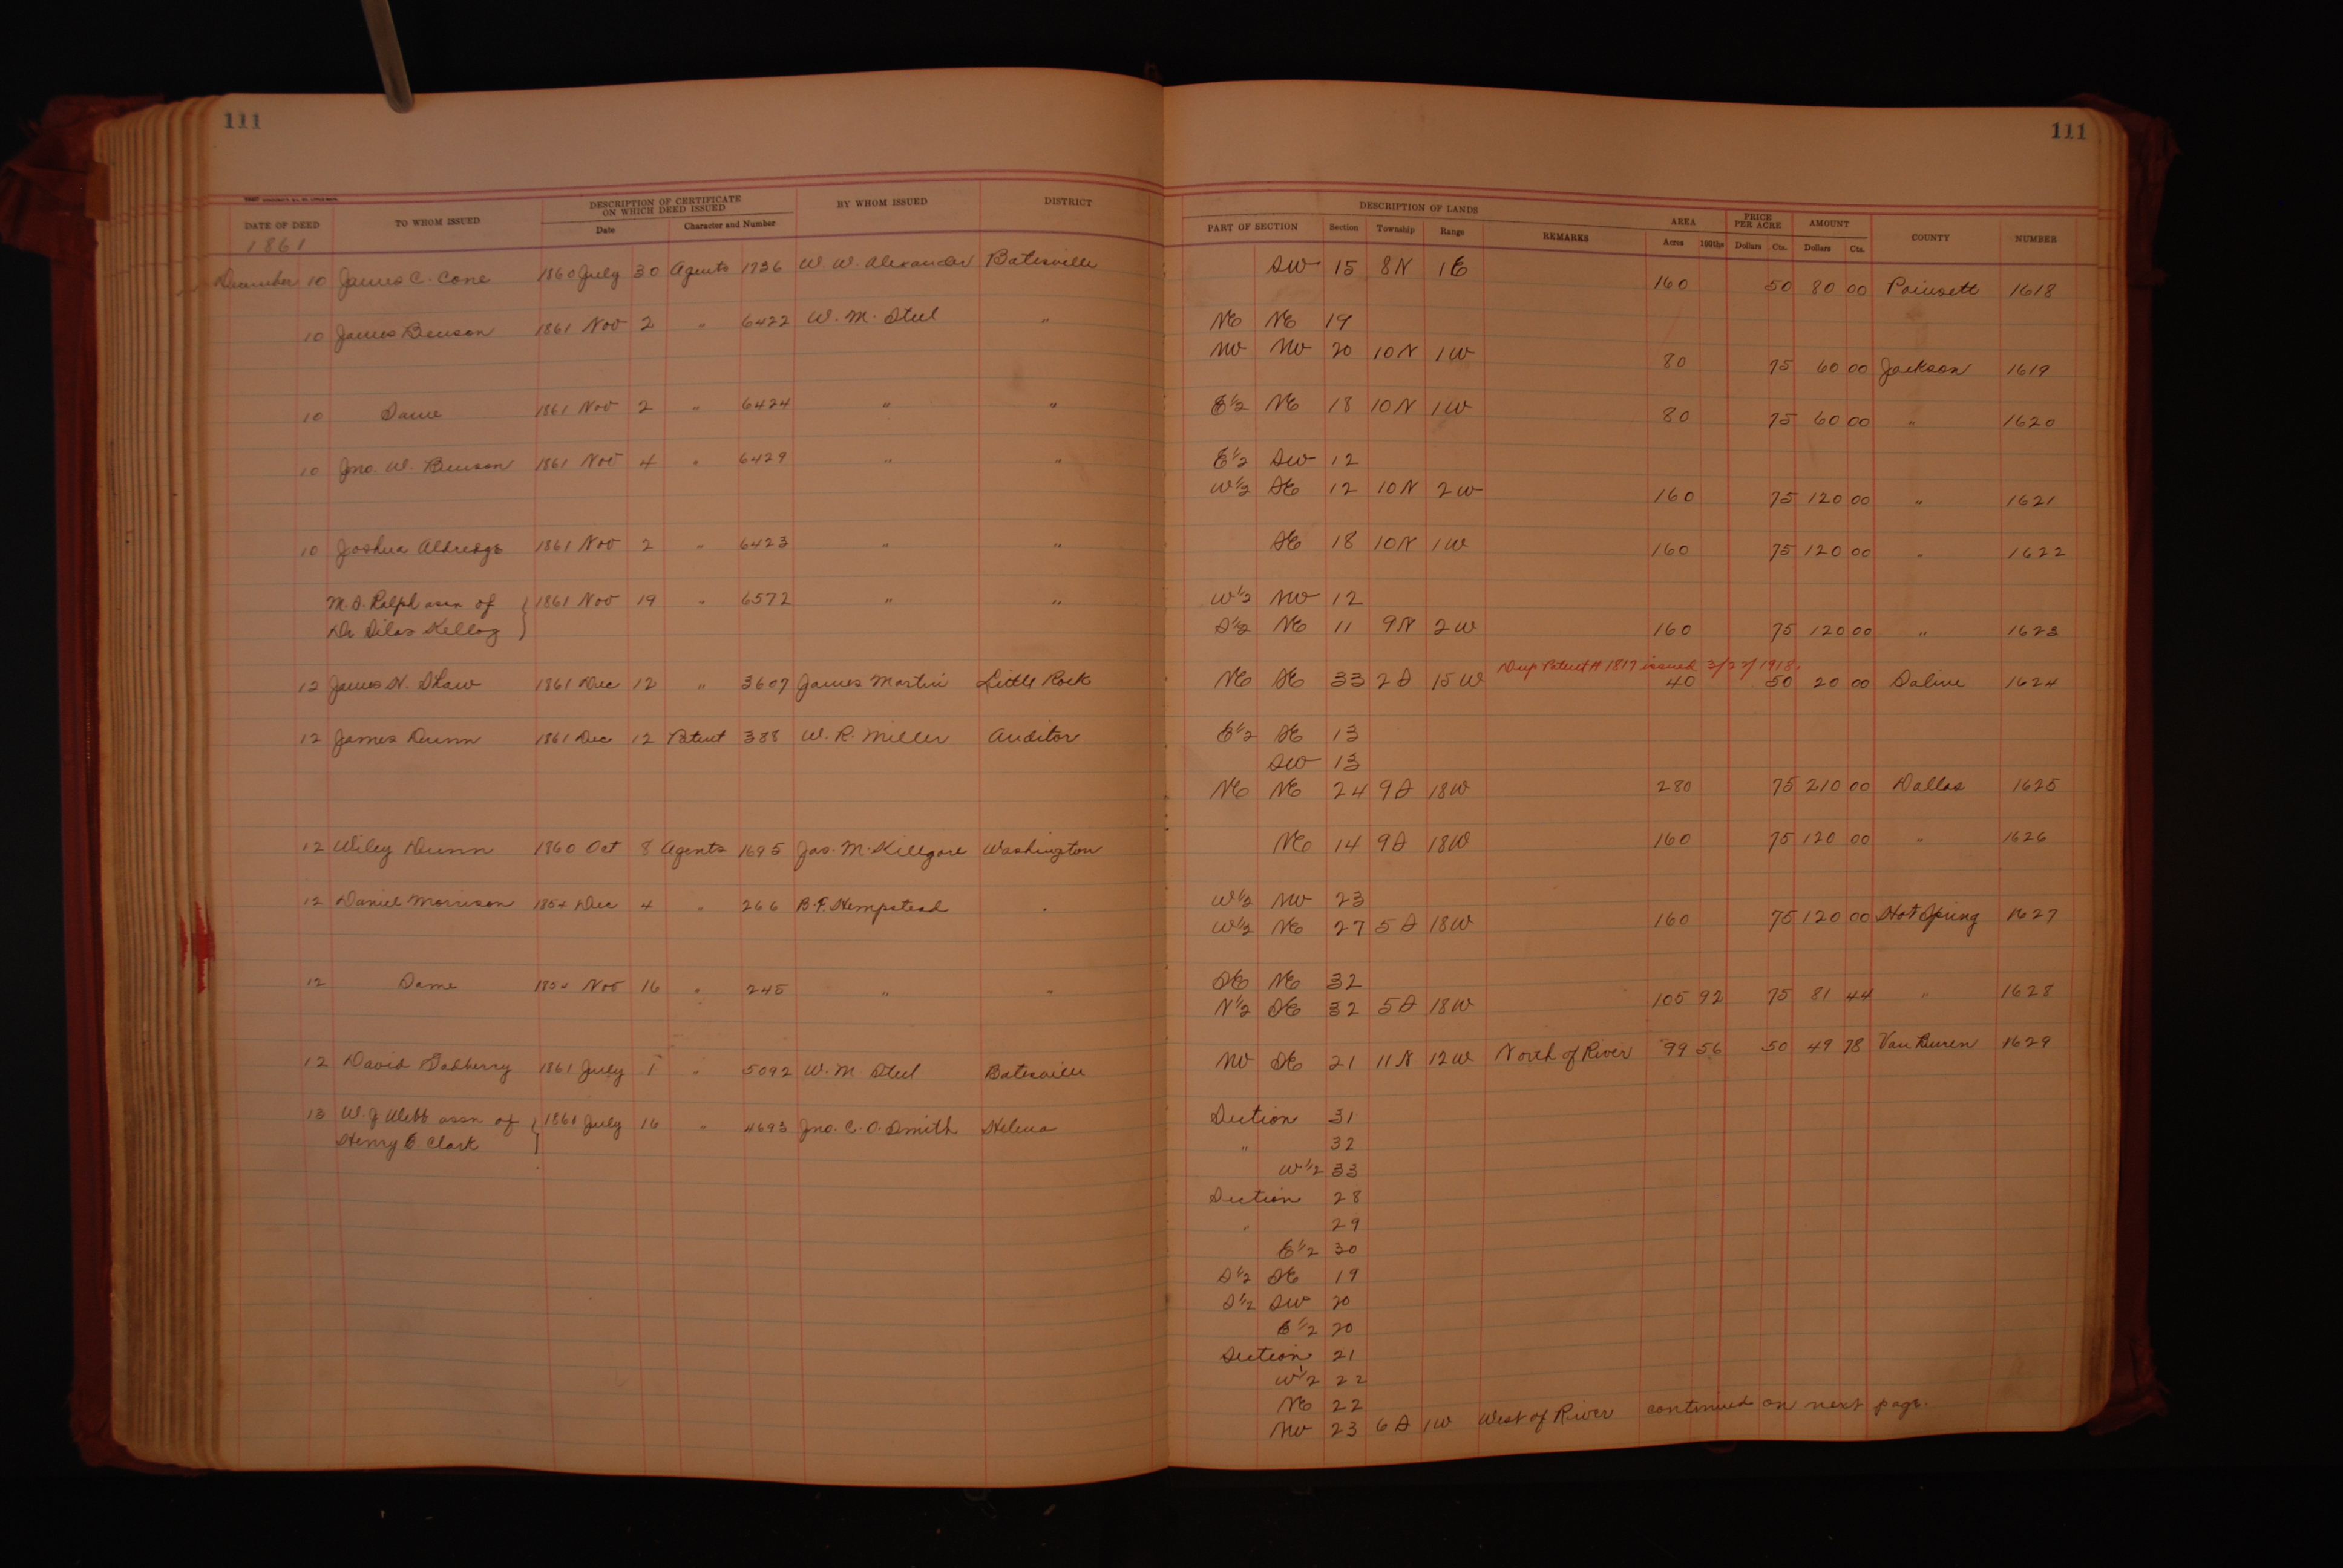 111
111
DATE OF DEED TO WHOM ISSUED DESCRIPTION OF CERTIFICATE ON WHICH DEED ISSUED BY WHOM ISSUED DISTRICT DESCRIPTION OF LANDS AREA PRICE PER ACRE AMOUNT COUNTY NUMBER
Date Character and Number PART OF SECTION Section Township Range REMARKS Acres 100ths Dollars Cts. Dollars Cts.
1861
December 10 James C. Cone 1860 July 30 Agents 1736 W. W. Alexander Batesville SW 15 8N 1E 160 50 80 00 Poinsett 1618
10 James Benson 1861 Nov 2 " 6422 W. M. Steel " NE NE 19
NW NW 20 10N 1W 80 75 60 00 Jackson 1619
10 Same 1861 Nov 2 " 6424 " " E½ NE 18 10N 1W 80 75 60 00 " 1620
10 Jno. W. Benson 1861 Nov 4 " 6429 " " E½ SW 12
W½ SE 12 10N 2W 160 75 120 00 " 1621
10 Joshua Aldredge 1861 Nov 2 " 6423 " " SE 18 10N 1W 160 75 120 00 " 1622
M. S. Ralph assn of 1861 Nov 19 " 6572 " " W½ NW 12
Dr Silas Kellog S½ NE 11 9N 2W 160 75 120 00 " 1623
Dup Patent # 1817 issued 3/27/1918.
12 James N. Shaw 1861 Dec 12 " 3607 James Martin Little Rock NE SE 33 2S 15W 40 50 20 00 Saline 1624
12 James Dunn 1861 Dec 12 Patent 388 W. R. Miller Auditor E½ SE 13
SW 13
NE NE 24 9S 18W 280 75 210 00 Dallas 1625
12 Wiley Dunn 1860 Oct 8 Agents 1695 Jas. M. Killgore Washington NE 14 9S 18W 160 75 120 00 " 1626
12 Daniel Morrison 1854 Dec 4 " 266 B. F. Hempstead " W½ NW 23
W½ NE 27 5S 18W 160 75 120 00 Hot Spring 1627
12 Same 1854 Nov 16 " 245 " " SE NE 32
N½ SE 32 5S 18W 105 92 75 81 44 " 1628
12 David Gadberry 1861 July 1 " 5092 W. M Steel Batesville NW SE 21 11N 12W North of River 99 56 50 49 78 Van Buren 1629
13 W. J Webb assn of 1861 July 16 " 4693 Jno. C. O. Smith Helena Section 31
Henry E Clark " 32
W½ 33
Section 28
" 29
E½ 30
S½ SE 19
S½ SW 20
E½ 20
Section 21
W½ 22
NE 22
NW 23 6S 1W West of River continued on next page.